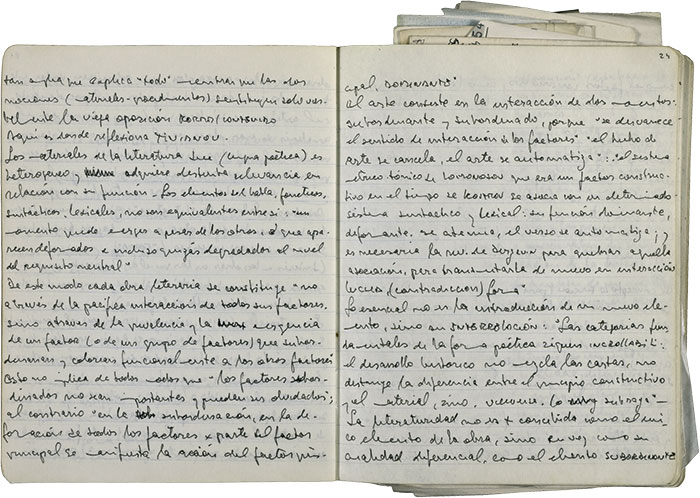 tan amplia que explica "todo" mientras que las dos
nociones (materiales-procedimientos) sustituyen solo
la vieja oposición
Aqui es donde reflexiona
Los materiales de la literatura
heterogeneo y adquiere distinta relevancia en
relación con su función. Los elementos del habla, foneticos,
sintácticos, lexicales, no son equivalentes entre si: "un
puede a expensas de los otros, que
deformados e incluso quizás degradados al nivel
del requisito neutral"
De este modo cada obra literaria se constituye "no
a través de la pacifica interacción de todos sus factores,
sino a través de la y la exigencia
de un factor (o de un grupo de factores) que subor-
dinan y colorean funcionalmente a los otros factores"
Esto no implica de todos modos que "los factores subor-
dinados no sean importantes y puedan ser olvidados;
al contrario "en la subordinación, en la de-
formación de todos los factores x parte del factor
principal se manifiesta la acción del factor prin-
24
cipal,
el arte consiste en la interacción de dos
subordinante y subordinado, porque "se desvanece
el sentido de interacción de los factores" "el hecho de
arte se cancela, el arte se automatiza": "el sistema
metrico tónico de que era un factor construc-
tivo en el tiempo de se asocia con un determinado
sistema sintactico y lexical: su función dominante,
deformante, se atenua, el verso se automatiza; y
es necesaria la rev. de para quebrar aquella
asociación, para transmutarla de nuevo en interacción
lucha, (contradiccion) forma"
Lo esencial no es la introducción de un nuevo ele-
mento, sino su "Las categorias fun-
damentales de la forma poética siguen
el desarrollo historico no mezcla las cartas, no
destruye la diferencia entre el principio constructivo
y el material, sino, lo subraya"
La literaturidad no es x concebida como el úni-
co elemento de la obra, sino en vez como su
cualidad diferencial, como el elemento SUBORDINANTE